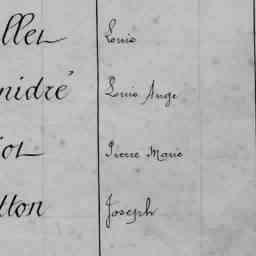 llet Louis
nidré Louis Ange
ot Pierre Marie
tton Joseph